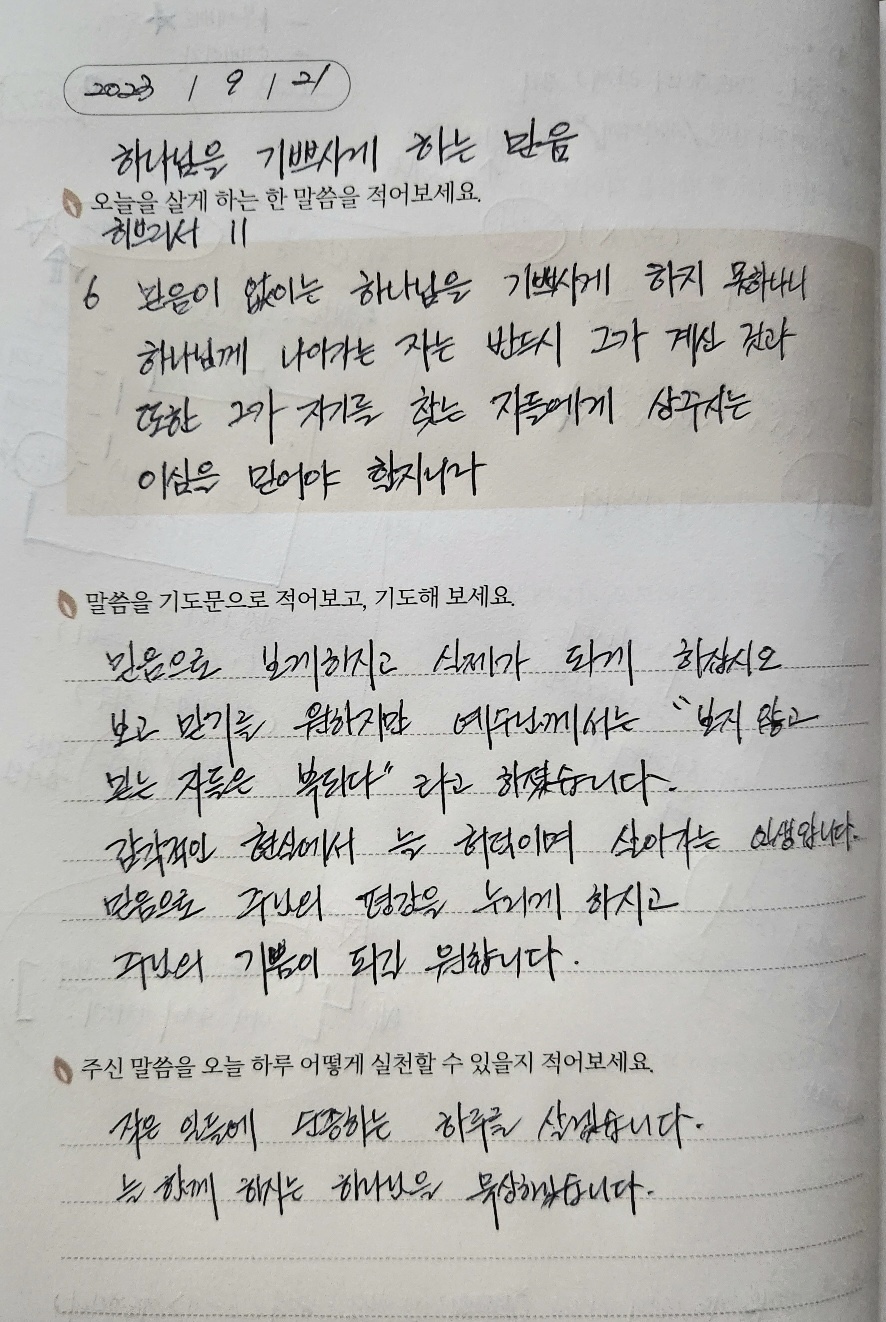 2023 / 9 / 21
하나님을 기쁘시게 하는 믿음
오늘을 살게 하는 한 말씀을 적어보세요.
히브리서 11
6 믿음이 없이는 하나님을 기쁘시게 하지 못하나니
하나님께 나아가는 자는 반드시 그가 계신 것과
또한 그가 자기를 찾는 자들에게 상주시는
이심을 믿어야 할지니라
말씀을 기도문으로 적어보고, 기도해 보세요.
믿음으로 보게하시고 실제가 되게 하십시오
보고 믿기를 원하지만 예수님께서는 "보지 않고
믿는 자들은 복되다" 라고 하셨습니다.
감각적인 현실에서 늘 허덕이며 살아가는 인생입니다.
믿음으로 주님의 평강을 누리게 하시고
주님의 기쁨이 되길 원합니다.
주신 말씀을 오늘 하루 어떻게 실천할 수 있을지 적어보세요.
작은 일들에 순종하는 하루를 살겠습니다.
늘 함께 하시는 하나님을 묵상하겠습니다.